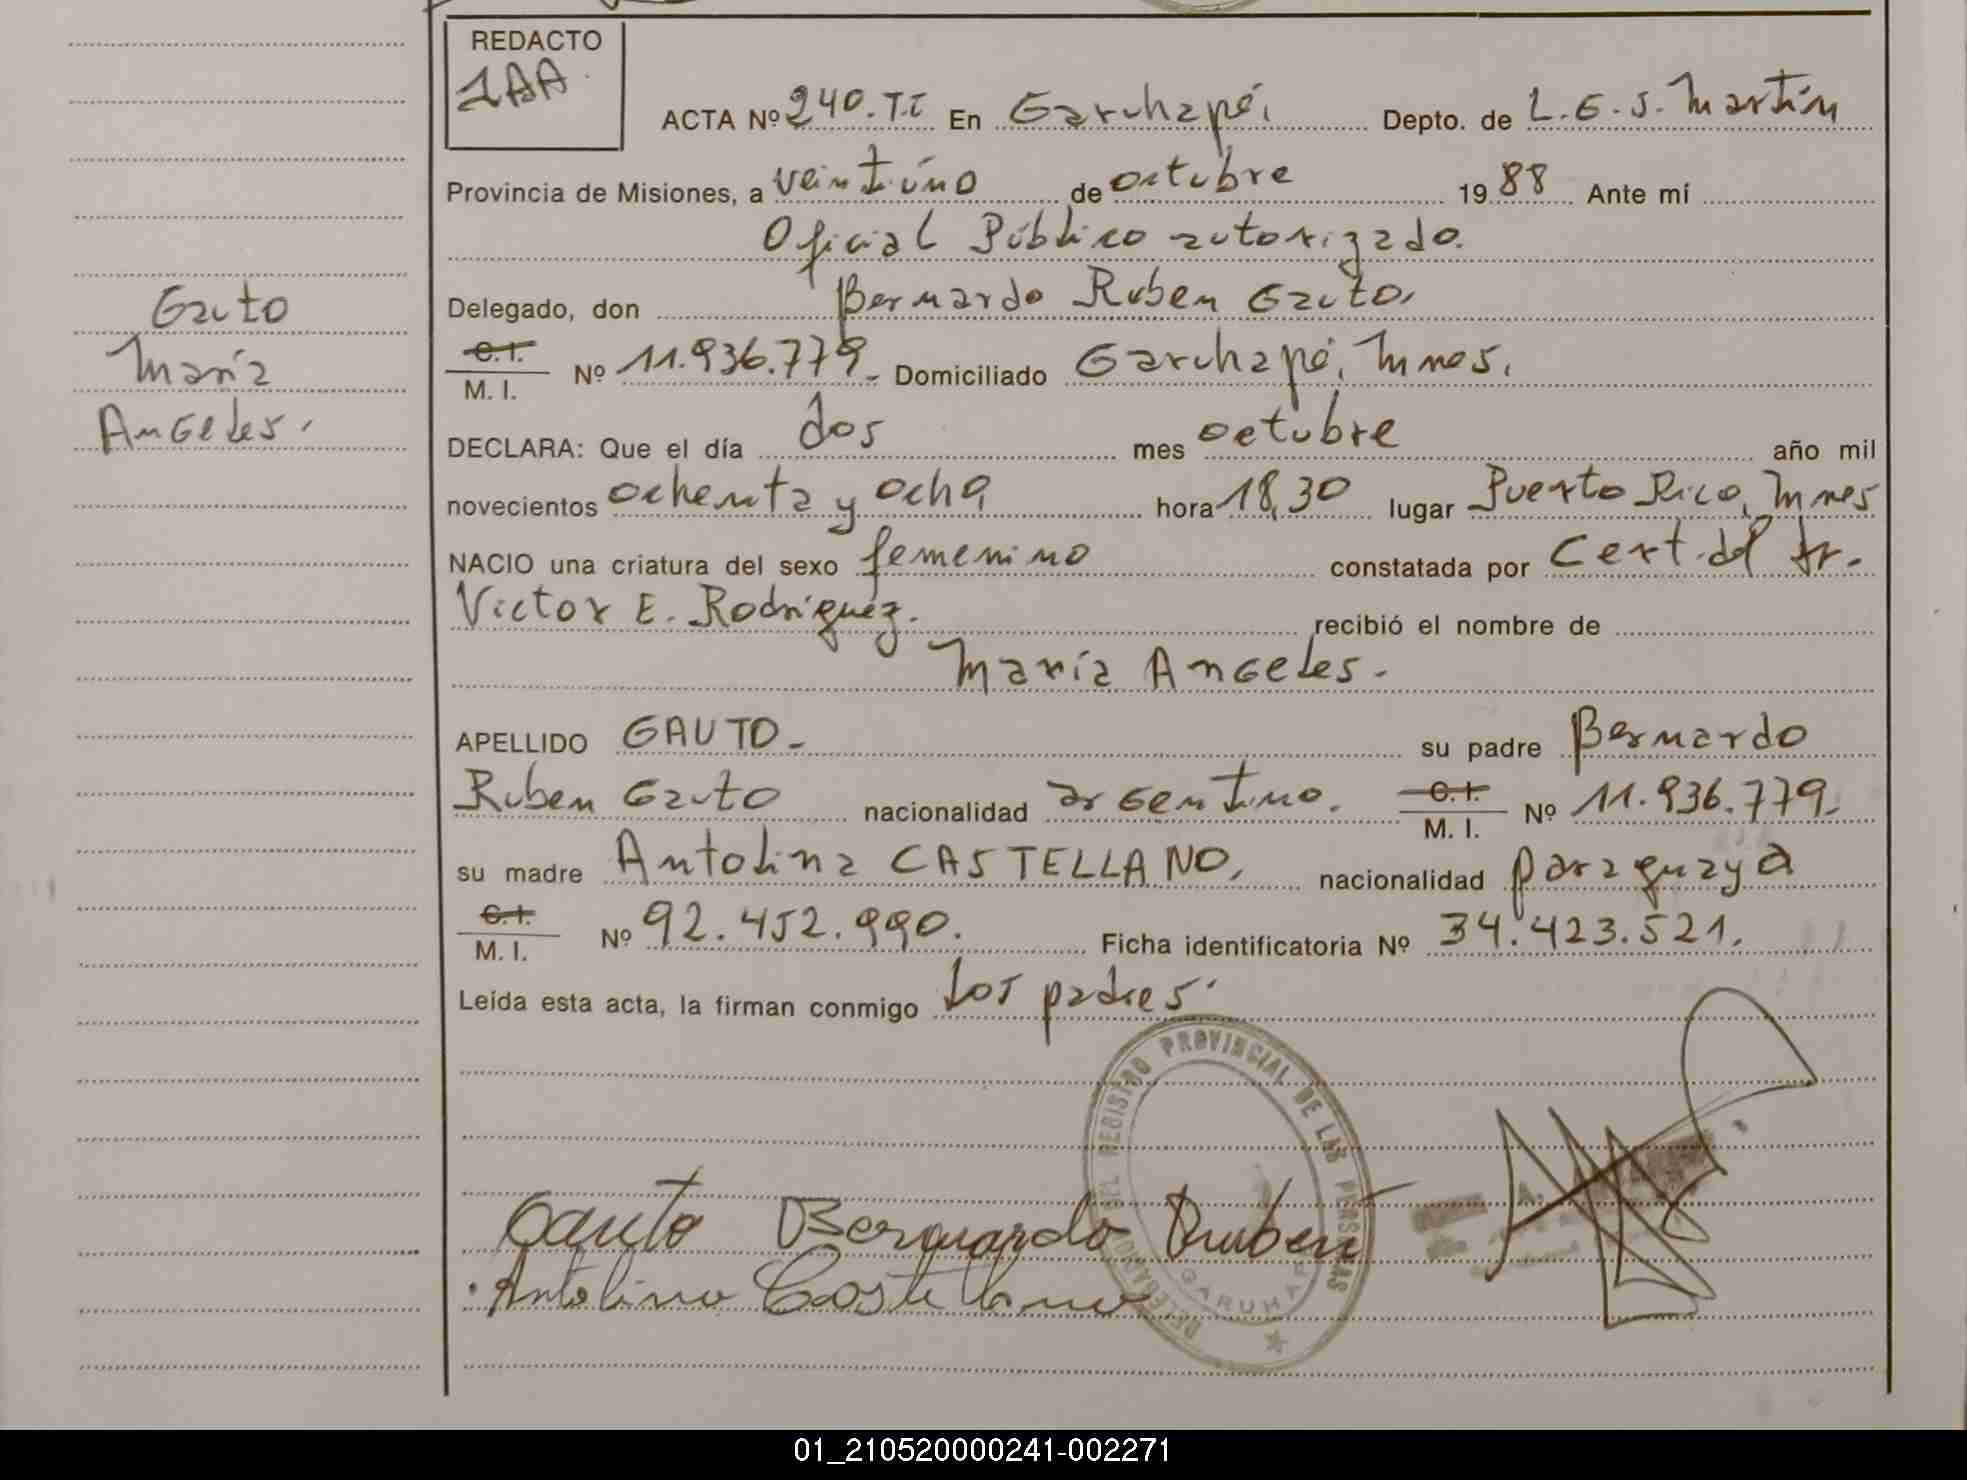 REDACTO
1AA
ACTA Nº 240.T.I En Garuhapé, Depto. de L.G.S. Martín
Provincia de Misiones, a veintiuno de octubre 1988 Ante mí
Oficial Público autorizado.
Gauto
Delegado, don Bernardo Ruben Gauto,
María
C.I. M.I. Nº 11.936.779. Domiciliado Garuhapé, Mnes.
Angeles.
DECLARA: Que el día dos mes octubre año mil
novecientos ochenta y ocho hora 18,30 lugar Puerto Rico, Mnes
NACIO una criatura del sexo femenino constatada por Cert. del Dr.
Victor E. Rodríguez. recibió el nombre de
María Angeles.
APELLIDO GAUTO- su padre Bernardo
Ruben Gauto nacionalidad argentino. C.I. M.I. Nº 11.936.779.
su madre Antolina CASTELLANO, nacionalidad paraguaya
C.I. M.I. Nº 92.452.990. Ficha identificatoria Nº 34.423.521.
Leída esta acta, la firman conmigo los padres.
DELEGACION DEL REGISTRO PROVINCIAL DE LAS PERSONAS
Gauto Bernardo Ruben
Antolina Castellano
01_210520000241-002271